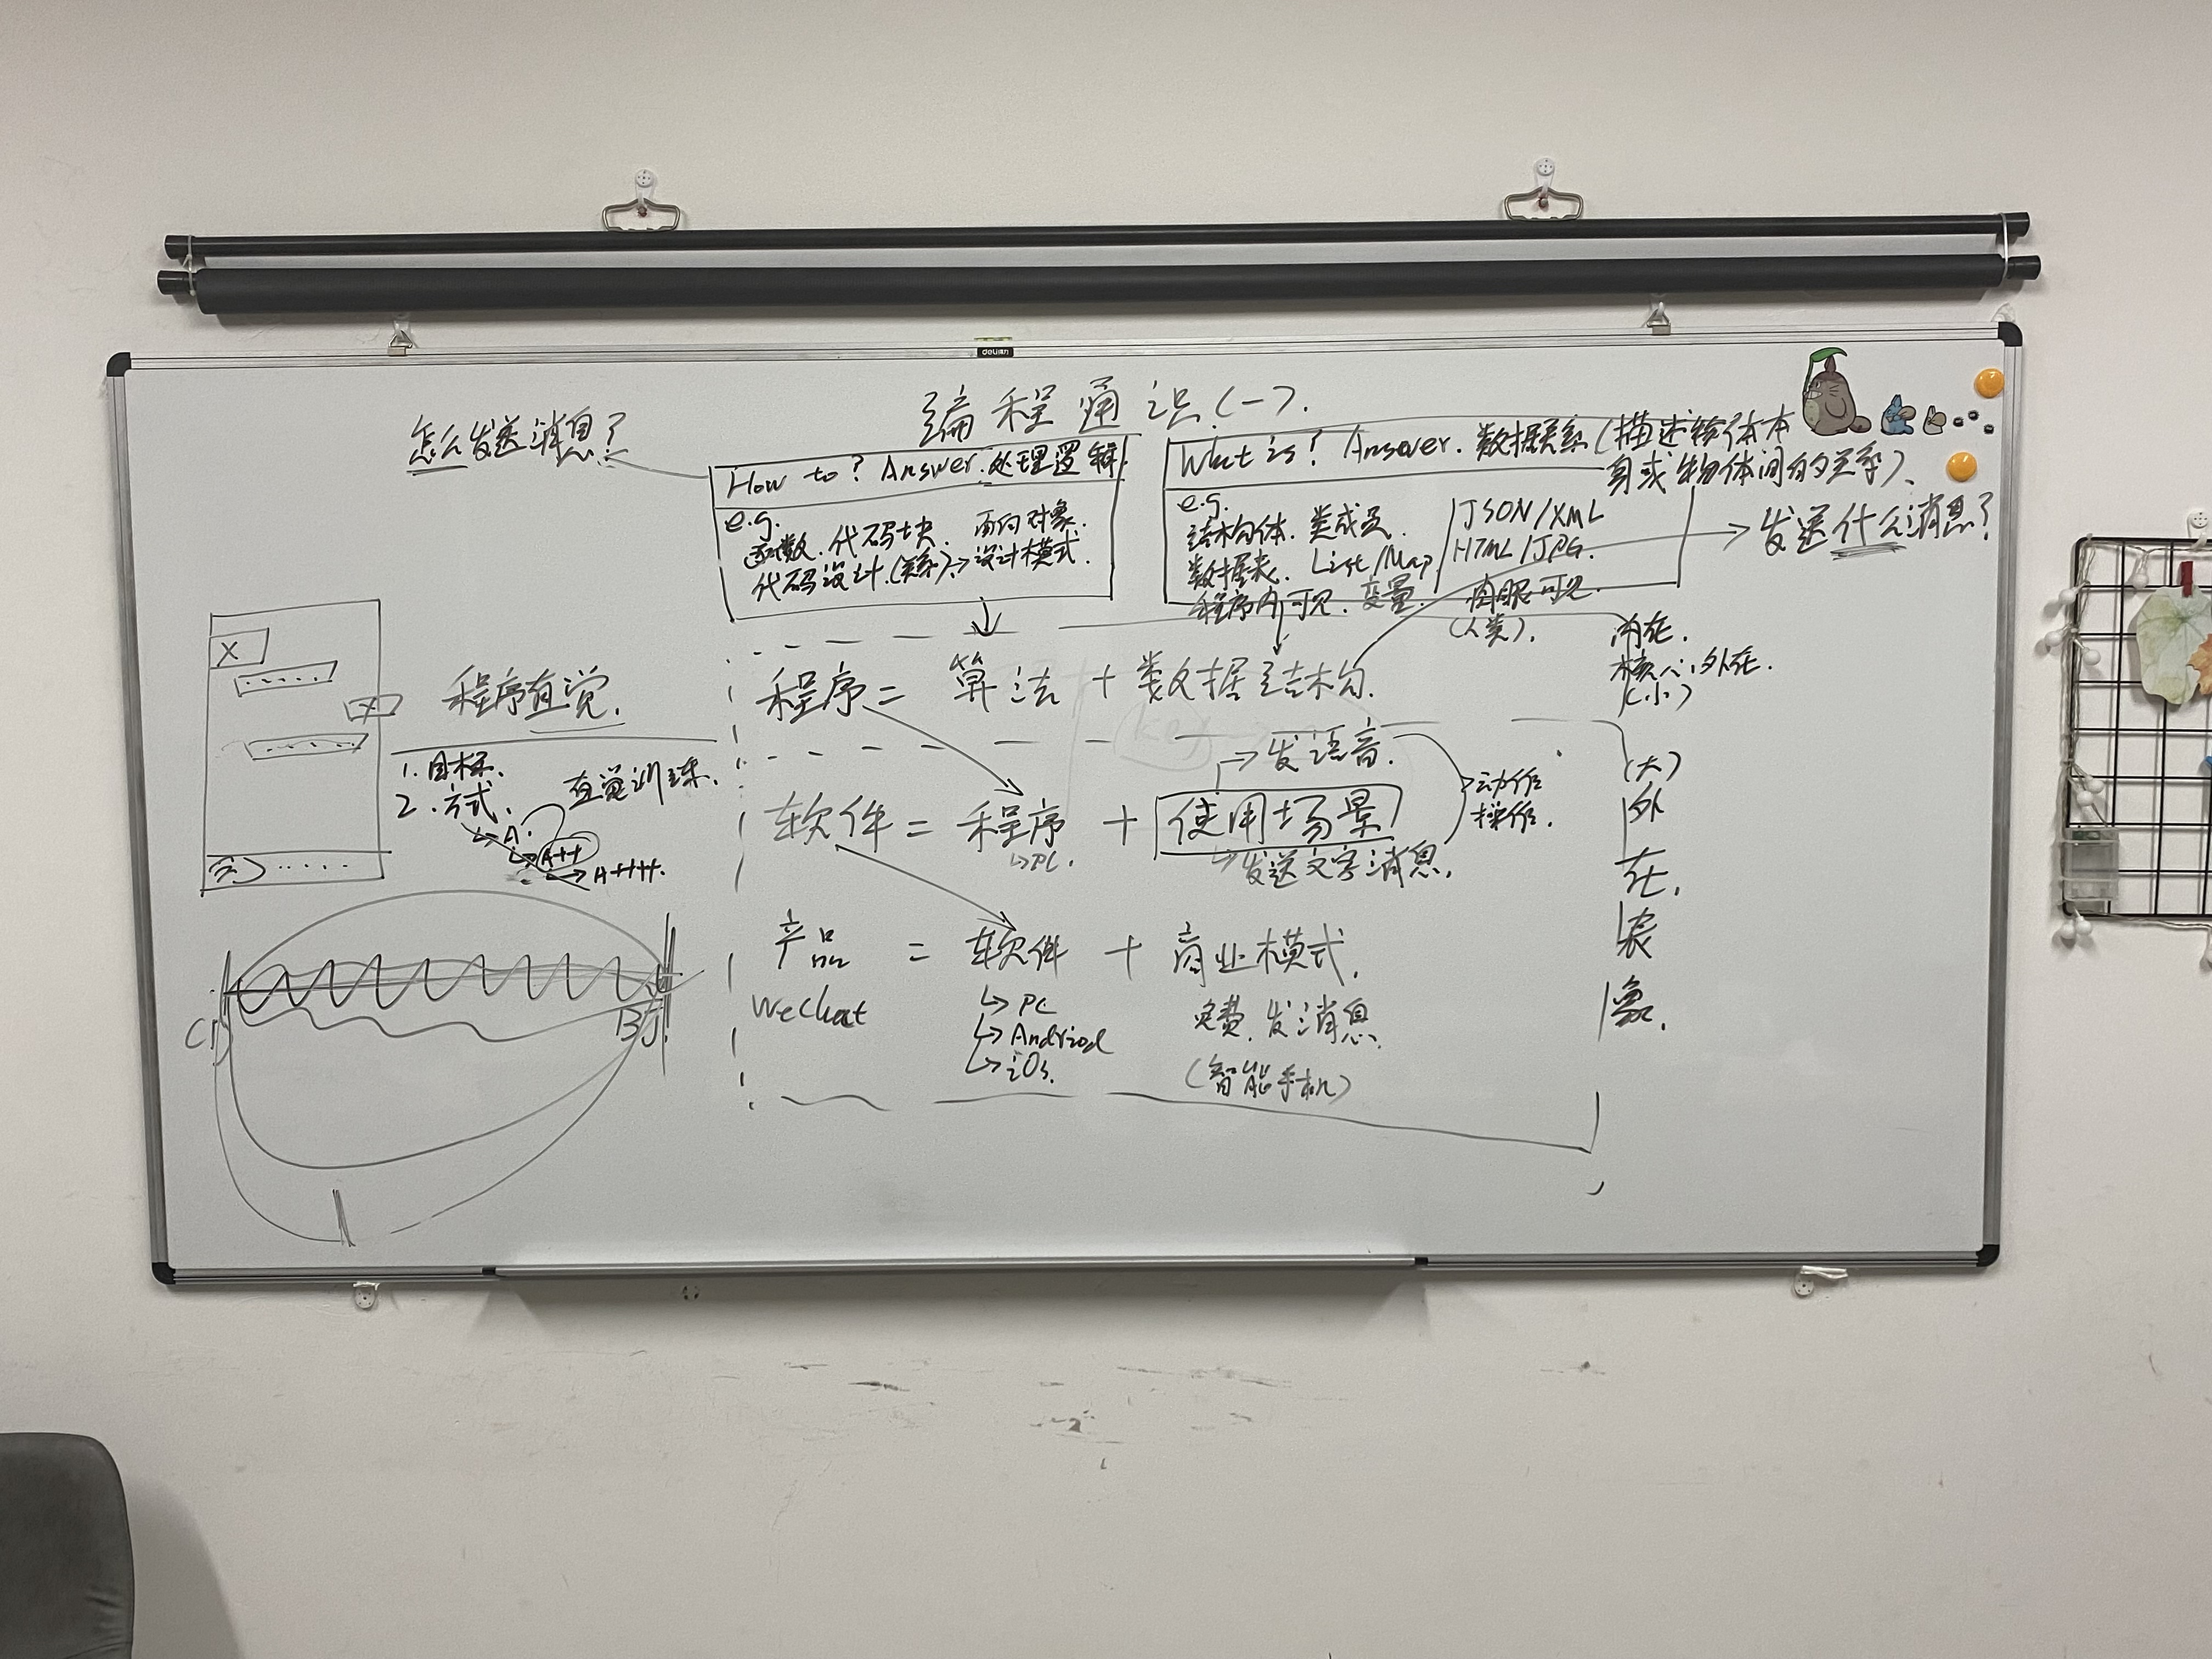 deli得力
编程通识(一).
怎么发送消息?
How to? Answer. 处理逻辑.
e.g.
函数. 代码块. 面向对象.
代码设计.(关系). → 设计模式.
What is? Answer. 数据关系(描述物体本
身或物体间的关系).
e.g.
结构体. 类成员.
数据表. List/Map
程序内可见. 变量.
JSON/XML
HTML/JPG.
肉眼可见.
(人类).
发送什么消息?
程序直觉.
1. 目标.
2. 方式.
直觉训练.
A.
A++
A++++.
程序 = 算法 + 数据结构.
内在.
核心, 外在.
(小)
发语音.
软件 = 程序 + 使用场景
PC.
发送文字消息.
动作
操作.
产品 = 软件 + 商业模式.
WeChat
PC
Andriod
iOS.
免费. 发消息.
(智能手机)
(大)
外
在.
表
象.
CD
BJ.